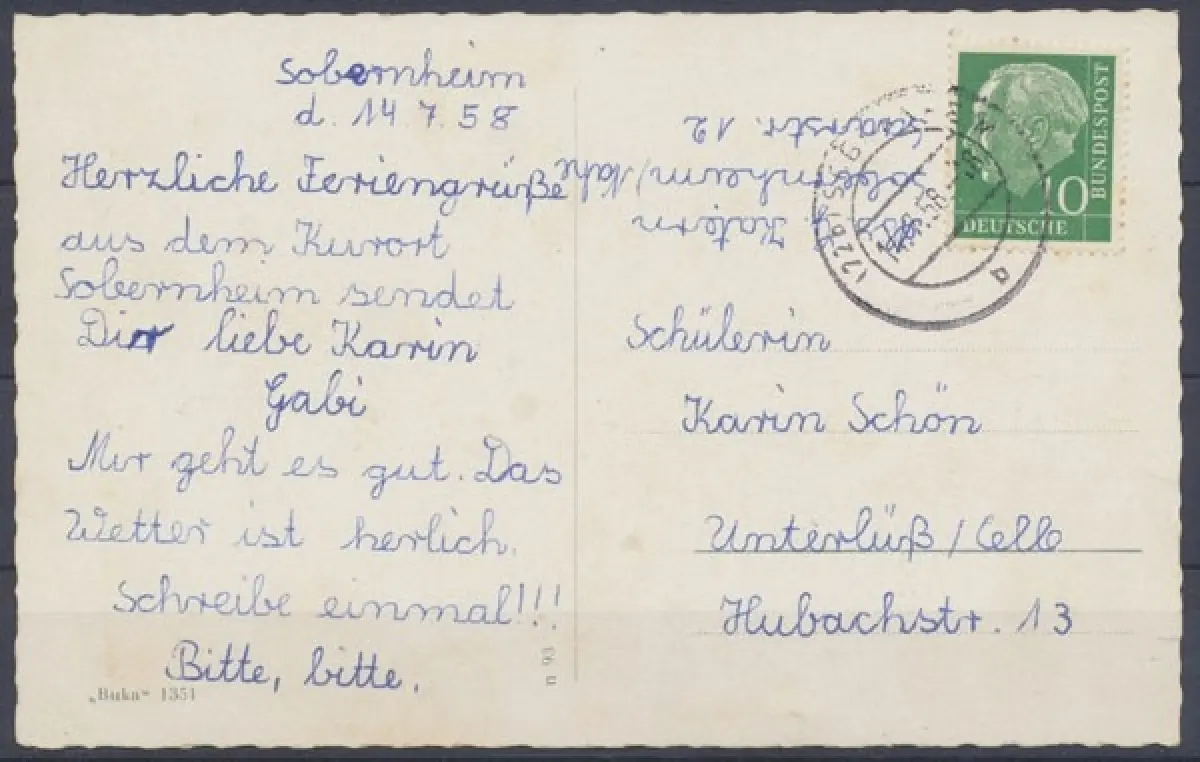 Sobernheim
d. 14.7.58
Herzliche Feriengrüße
aus dem Kurort
Sobernheim sendet
Dir liebe Karin
Gabi
Mir geht es gut. Das
Wetter ist herlich.
Schreibe einmal!!!
Bitte, bitte.
„Buka“ 1351
Sobernheim/Nahe
Saarstr. 12
BUNDESPOST
10
DEUTSCHE
Schülerin
Karin Schön
Unterlüß/Celle
Hubachstr. 13